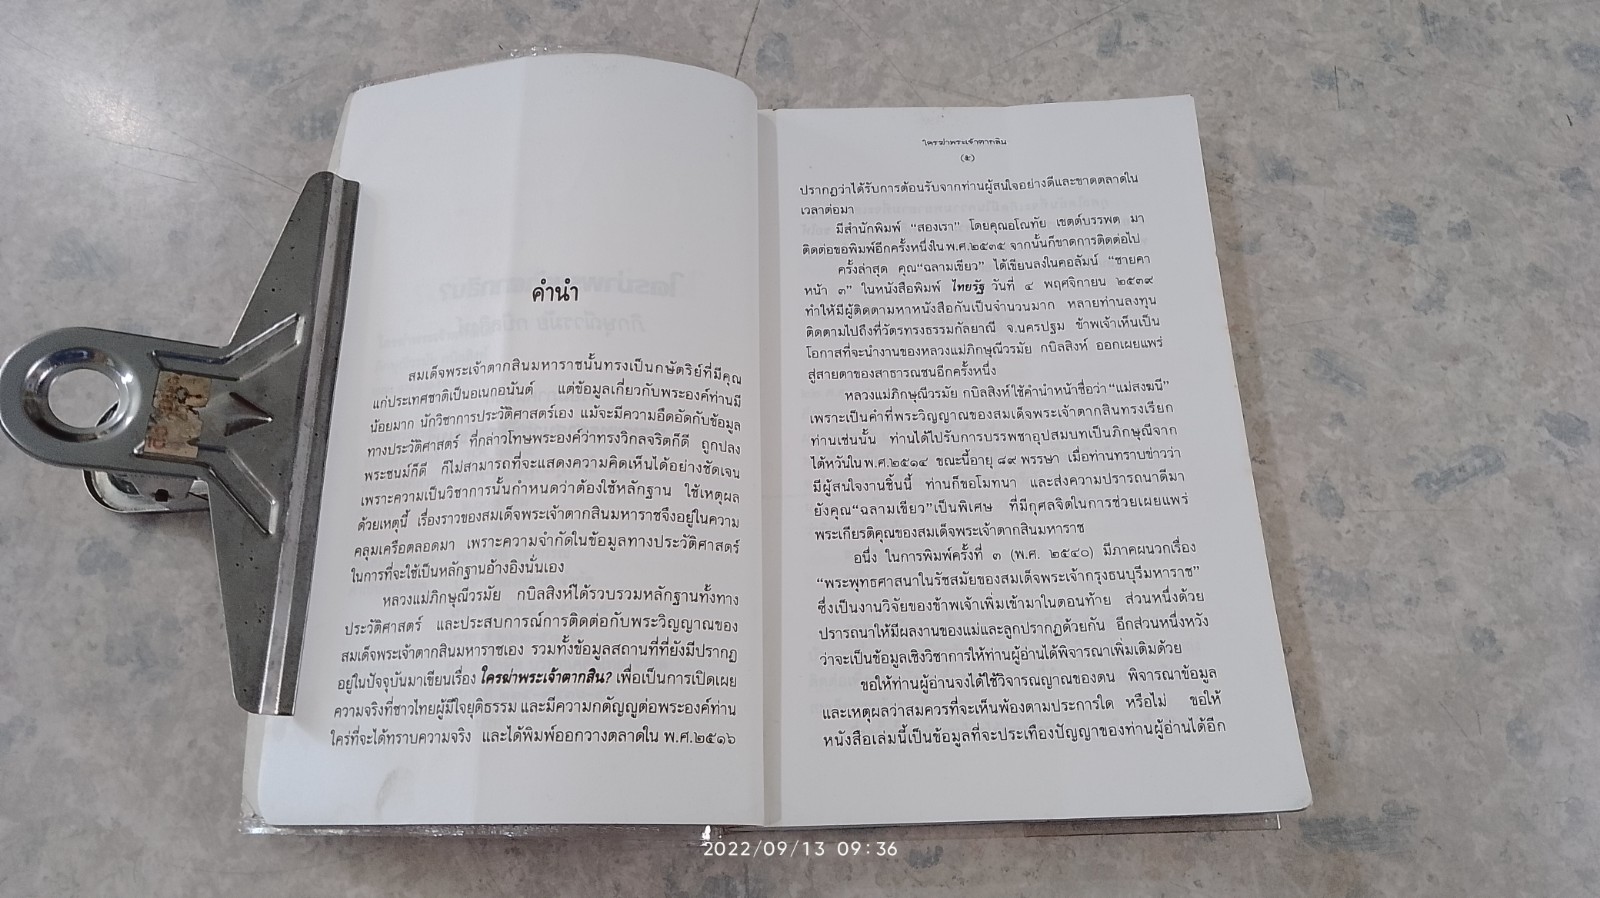 คำนำ
สมเด็จพระเจ้าตากสินมหาราชนั้นทรงเป็นกษัตริย์ที่มีคุณ
แก่ประเทศชาติเป็นอเนกอนันต์ แต่ข้อมูลเกี่ยวกับพระองค์ท่านมี
น้อยมาก นักวิชาการประวัติศาสตร์เอง แม้จะมีความอึดอัดกับข้อมูล
ทางประวัติศาสตร์ ที่กล่าวโทษพระองค์ว่าทรงวิกลจริตก็ดี ถูกปลง
พระชนม์ก็ดี ก็ไม่สามารถที่จะแสดงความคิดเห็นได้อย่างชัดเจน
เพราะความเป็นวิชาการนั้นกำหนดว่าต้องใช้หลักฐาน ใช้เหตุผล
ด้วยเหตุนี้ เรื่องราวของสมเด็จพระเจ้าตากสินมหาราชจึงอยู่ในความ
คลุมเครือตลอดมา เพราะความจำกัดในข้อมูลทางประวัติศาสตร์
ในการที่จะใช้เป็นหลักฐานอ้างอิงนั่นเอง
หลวงแม่ภิกษุณีวรมัย กบิลสิงห์ได้รวบรวมหลักฐานทั้งทาง
ประวัติศาสตร์ และประสบการณ์การติดต่อกับพระวิญญาณของ
สมเด็จพระเจ้าตากสินมหาราชเอง รวมทั้งข้อมูลสถานที่ที่ยังมีปรากฏ
อยู่ในปัจจุบันมาเขียนเรื่อง ใครฆ่าพระเจ้าตากสิน? เพื่อเป็นการเปิดเผย
ความจริงที่ชาวไทยผู้มีใจยุติธรรม และมีความกตัญญูต่อพระองค์ท่าน
ใคร่ที่จะได้ทราบความจริง และได้พิมพ์ออกวางตลาดใน พ.ศ.๒๕๑๖
ใครฆ่าพระเจ้าตากสิน
(๕)
ปรากฏว่าได้รับการต้อนรับจากท่านผู้สนใจอย่างดีและขาดตลาดใน
เวลาต่อมา
มีสำนักพิมพ์ “สองเรา” โดยคุณอโณทัย เขตต์บรรพต มา
ติดต่อขอพิมพ์อีกครั้งหนึ่งใน พ.ศ.๒๕๓๕ จากนั้นก็ขาดการติดต่อไป
ครั้งล่าสุด คุณ“ฉลามเขียว” ได้เขียนลงในคอลัมน์ “ชายคา
หน้า ๓” ในหนังสือพิมพ์ ไทยรัฐ วันที่ ๔ พฤศจิกายน ๒๕๓๙
ทำให้มีผู้ติดตามหาหนังสือกันเป็นจำนวนมาก หลายท่านลงทุน
ติดตามไปถึงที่วัตรทรงธรรมกัลยาณี จ.นครปฐม ข้าพเจ้าเห็นเป็น
โอกาสที่จะนำงานของหลวงแม่ภิกษุณีวรมัย กบิลสิงห์ ออกเผยแพร่
สู่สายตาของสาธารณชนอีกครั้งหนึ่ง
หลวงแม่ภิกษุณีวรมัย กบิลสิงห์ใช้คำนำหน้าชื่อว่า “แม่สงฆนี”
เพราะเป็นคำที่พระวิญญาณของสมเด็จพระเจ้าตากสินทรงเรียก
ท่านเช่นนั้น ท่านได้ไปรับการบรรพชาอุปสมบทเป็นภิกษุณีจาก
ไต้หวันใน พ.ศ.๒๕๑๔ ขณะนี้อายุ ๘๙ พรรษา เมื่อท่านทราบข่าวว่า
มีผู้สนใจงานชิ้นนี้ ท่านก็ขอโมทนา และส่งความปรารถนาดีมา
ยังคุณ“ฉลามเขียว”เป็นพิเศษ ที่มีกุศลจิตในการช่วยเผยแพร่
พระเกียรติคุณของสมเด็จพระเจ้าตากสินมหาราช
อนึ่ง ในการพิมพ์ครั้งที่ ๓ (พ.ศ. ๒๕๔๐) มีภาคผนวกเรื่อง
“พระพุทธศาสนาในรัชสมัยของสมเด็จพระเจ้ากรุงธนบุรีมหาราช”
ซึ่งเป็นงานวิจัยของข้าพเจ้าเพิ่มเข้ามาในตอนท้าย ส่วนหนึ่งด้วย
ปรารถนาให้มีผลงานของแม่และลูกปรากฏด้วยกัน อีกส่วนหนึ่งหวัง
ว่าจะเป็นข้อมูลเชิงวิชาการให้ท่านผู้อ่านได้พิจารณาเพิ่มเติมด้วย
ขอให้ท่านผู้อ่านจงได้ใช้วิจารณญาณของตน พิจารณาข้อมูล
และเหตุผลว่าสมควรที่จะเห็นพ้องตามประการใด หรือไม่ ขอให้
หนังสือเล่มนี้เป็นข้อมูลที่จะประเทืองปัญญาของท่านผู้อ่านได้อีก
2022/09/13 09:36